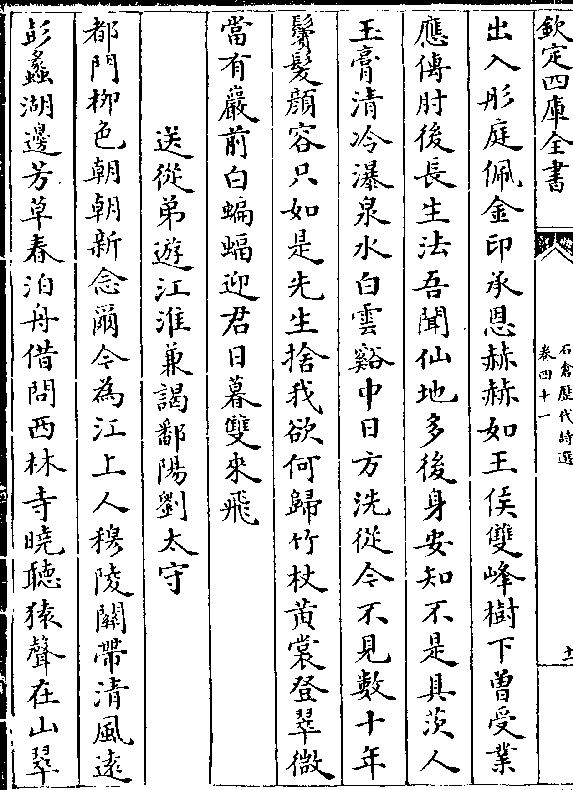 欽定四庫全書
石倉歷代詩選
卷四十一
十一
出入彤庭佩金印承恩赫赫如王侯雙峰樹下曽受業
應傳肘後長生法吾聞仙地多後身安知不是具茨人
玉膏清冷瀑泉水白雲谿中日方洗從今不見數十年
鬢髮顔容只如是先生捨我欲何歸竹杖黄裳登翠微
當有巖前白蝙蝠迎君日暮雙來飛
送從弟遊江淮兼謁鄱陽劉太守
都門栁色朝朝新念爾今為江上人穆陵關帶清風逺
彭蠡湖邊芳草春泊舟借問西林寺曉聽猿聲在山翠